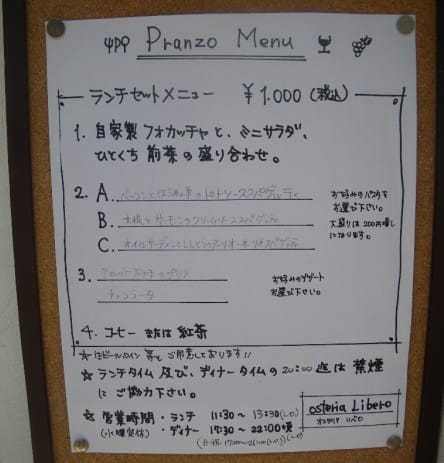 Pranzo Menu
ランチセットメニュー ¥1.000 (税込)
1. 自家製フォカッチャと、ミニサラダ、
ひとくち前菜の盛り合わせ。
2. A. ベーコンとほうれん草のトマトソーススパゲッティ
B. 大根とサーモンのクリームソーススパゲッティ
C. オイルサーディンとししとうのアーリオ・オーリオスパゲッティ
お好みのパスタを
お選び下さい。
大盛りは200円増しになります。
3.
お好みのドルチェを
お選び下さい。
4. コーヒー または 紅茶
☆ ビール ワイン 等もご用意しております!!
☆ ランチタイム及び、ディナータイムの20:00迄は禁煙
にご協力下さい。
☆ 営業時間・ランチ 11:30〜13:30(L.O)
(水曜定休)・ディナー 17:30〜22:00頃
(L.O)
osteria Libero
オステリア リベロ